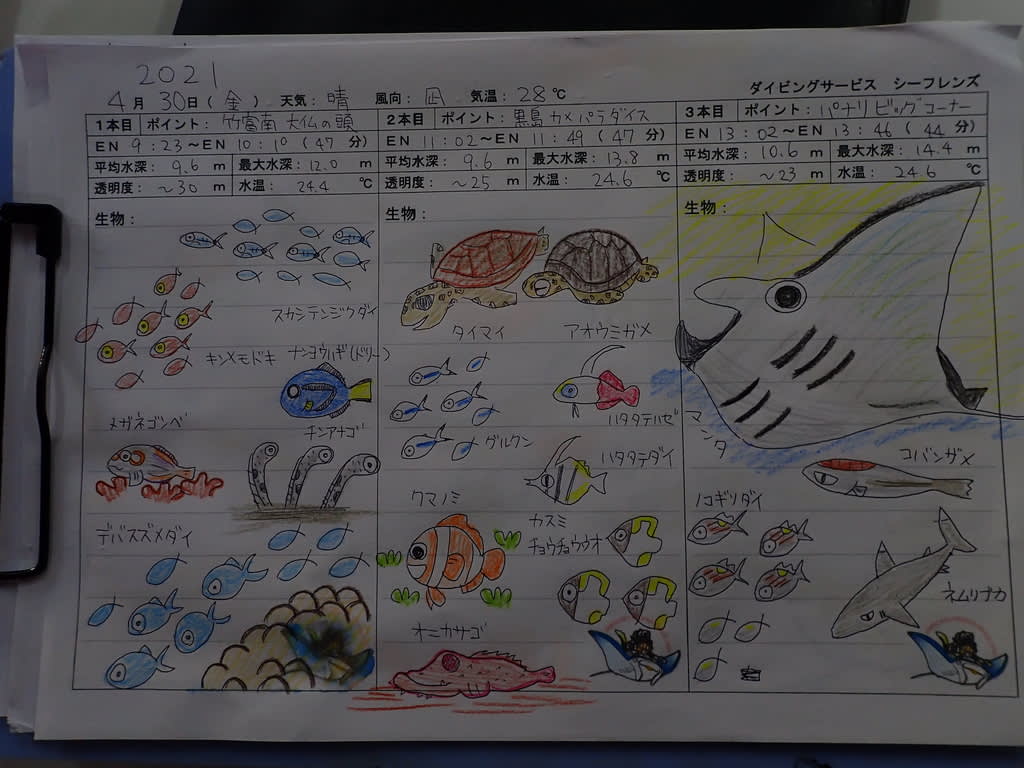 2021
ダイビングサービス シーフレンズ
4月30日(金) 天気:晴 風向:凪 気温:28℃
1本目 ポイント:竹富南 大仏の頭
EN 9:23~EN 10:10(47分)
平均水深:9.6m 最大水深:12.0m
透明度:~30m 水温:24.4℃
生物:
スカシテンジクダイ
キンメモドキ ナンヨウハギ(ドリー)
メガネゴンベ
チンアナゴ
デバスズメダイ
2本目 ポイント:黒島 カメパラダイス
EN 11:02~EN 11:49(47分)
平均水深:9.6m 最大水深:13.8m
透明度:~25m 水温:24.6℃
生物:
タイマイ アオウミガメ
ハタタテハゼ
グルクン
ハタタテダイ
クマノミ
カスミ
チョウチョウウオ
オニカサゴ
3本目 ポイント:パナリ ビッグコーナー
EN 13:02~EN 13:46(44分)
平均水深:10.6m 最大水深:14.4m
透明度:~23m 水温:24.6℃
生物:
マンタ
コバンザメ
ノコギリダイ
ネムリブカ